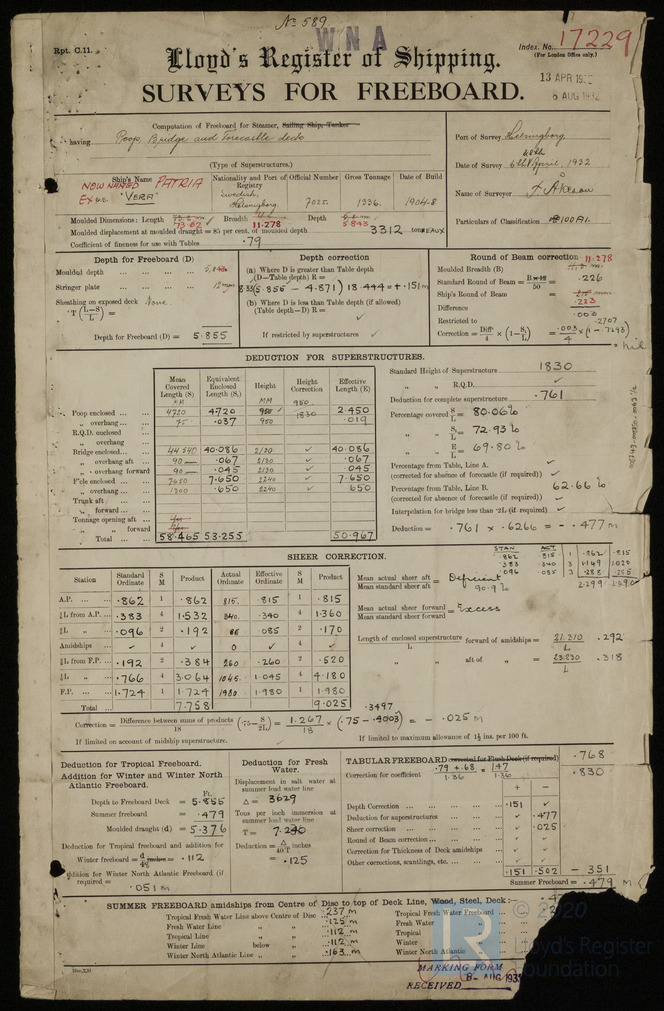 No 589.
WNA
Rpt. C.11.
Index. No. 17229
(For London Office only.)
Lloyd's Register of Shipping.
13 APR 193
8 AUG 1932
SURVEYS FOR FREEBOARD.
Computation of Freeboard for Steamer, Sailing Ship, Tanker
having Poop, Bridge and Forecastle deck
(Type of Superstructures.)
Port of Survey Helsingborg
Date of Survey 6th April, 1932
Name of Surveyor
Particulars of Classification 100A1.
NOW NAMED PATRIA
Ship's Name Nationality and Port of Registry Official Number Gross Tonnage Date of Build
Ex "VERA" Swedish, Helsingborg. 7025. 1336. 1904-8
Moulded Dimensions: Length 73.02 Breadth 11.278 Depth 5.843
Moulded displacement at moulded draught = 85 per cent. of moulded depth 3312 tonneaux
Coefficient of fineness for use with Tables .79
Depth for Freeboard (D)
Moulded depth
Stringer plate 12 mm
Sheathing on exposed deck None.
T (L-S/L) =
Depth for Freeboard (D) = 5.855
Depth correction
(a) Where D is greater than Table depth
(D—Table depth) R =
8.33(5.855 - 4.871) 18.444 = + .151 m
(b) Where D is less than Table depth (if allowed)
(Table depth—D) R =
If restricted by superstructures
Round of Beam correction 11.278
Moulded Breadth (B)
Standard Round of Beam = B×12/50 = .226
Ship's Round of Beam = .223
Difference .003
Restricted to .2707
Correction = Diff/4 × (1-S/L) = .003/4 × (1-.7293) = nil
DEDUCTION FOR SUPERSTRUCTURES.
Mean Covered Length (S) Equivalent Enclosed Length (S1) Height Height Correction Effective Length (E)
Poop enclosed 4720 4.720 950 950/1830 2.450
" overhang 75 .037 950 .019
R.Q.D. enclosed
" overhang
Bridge enclosed 44540 40.086 2130 40.086
" overhang aft 90 .067 2130 .067
" overhang forward 90 .045 2130 .045
F'cle enclosed 7650 7.650 2240 7.650
" overhang 1300 .650 2240 650
Trunk aft
" forward
Tonnage opening aft
" " forward
Total 58.465 53.255 50.967
Standard Height of Superstructure 1830
" " R.Q.D.
Deduction for complete superstructure .761
Percentage covered S/L = 80.06%
" S1/L = 72.93%
" E/L = 69.80%
Percentage from Table, Line A.
(corrected for absence of forecastle (if required))
Percentage from Table, Line B. 62.66%
(corrected for absence of forecastle (if required))
Interpolation for bridge less than .2L (if required)
Deduction = .761 × .6266 = - .477 m
SHEER CORRECTION.
STAN ACT
.862 .815 1 .862 .815
.383 .340 3 1.149 1.020
.096 .085 3 .288 .255
2.299
Station Standard Ordinate S M Product Actual Ordinate Effective Ordinate S M Product
A.P. .862 1 .862 815. .815 1 .815
⅙L from A.P. .383 4 1.532 340. .340 4 1.360
⅓L " .096 2 .192 85 .085 2 .170
Amidships 4 0 4
⅓L from F.P. .192 2 .384 260 .260 2 .520
⅙L " .766 4 3.064 1045. 1.045 4 4.180
F.P. 1.724 1 1.724 1980. 1.980 1 1.980
Total 7.758 9.025
Mean actual sheer aft / Mean standard sheer aft = Deficient 90.9%
Mean actual sheer forward / Mean standard sheer forward = Excess
Length of enclosed superstructure/L forward of amidships = 21.310/L .292
" " aft of " = 23.230/L .318
.3497
Correction = Difference between sums of products/18 (.75 - S/2L) = 1.267/18 (.75 - .4003) = - .025 m
If limited on account of midship superstructure.
If limited to maximum allowance of 1½ ins. per 100 ft.
Deduction for Tropical Freeboard.
Addition for Winter and Winter North Atlantic Freeboard.
Ft.
Depth to Freeboard Deck = 5.855
Summer freeboard = .479
Moulded draught (d) = 5.376
Deduction for Tropical freeboard and addition for
Winter freeboard = d/48 = .112
Addition for Winter North Atlantic Freeboard (if required) =
.051 m
Deduction for Fresh Water.
Displacement in salt water at summer load water line
Δ = 3629
Tons per inch immersion at summer load water line
T = 7.240
Deduction = Δ/40T
= .125
TABULAR FREEBOARD corrected for Flush Deck (if required) .768
Correction for coefficient .79 + .68/1.36 = 147/1.36 .830
+ -
Depth Correction .151
Deduction for superstructures .477
Sheer correction .025
Round of Beam correction
Correction for Thickness of Deck amidships
Other corrections, scantlings, etc.
.151 .502 - .351
Summer Freeboard = .479 m
SUMMER FREEBOARD amidships from Centre of Disc to top of Deck Line, Wood, Steel, Deck:—
Tropical Fresh Water Line above Centre of Disc .237 m
Fresh Water Line " " .125 m
Tropical Line " " .112 m
Winter Line below " .112 m
Winter North Atlantic Line " " .163 m
Tropical Fresh Water Freeboard
Fresh Water
Tropical
Winter
Winter North Atlantic
MARKING FORM
RECEIVED 8- AUG 193
© 2020
Lloyd's Register
Foundation